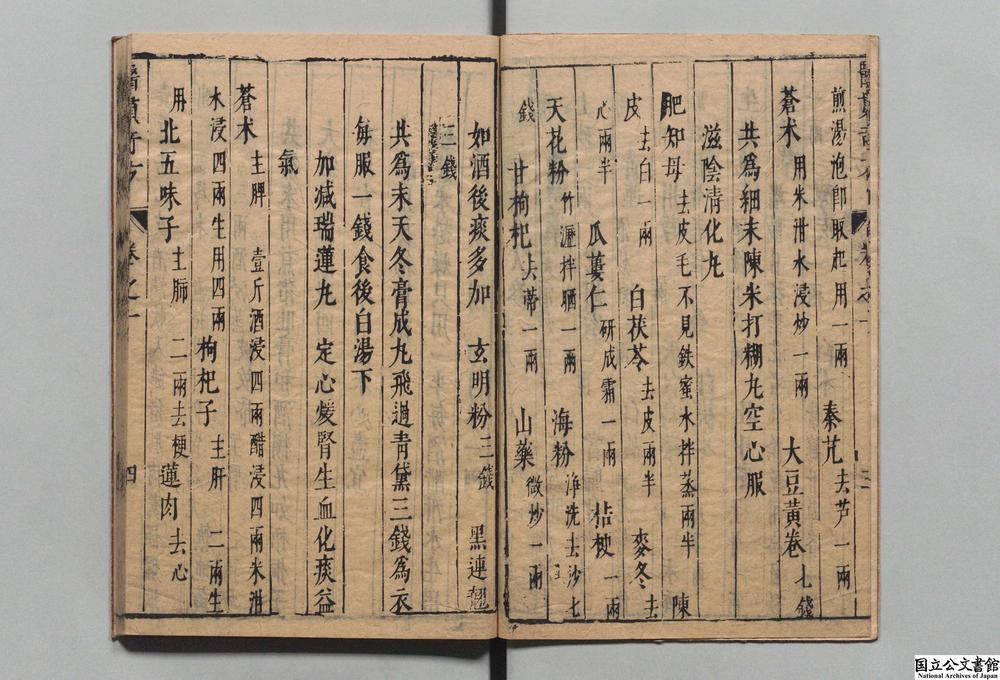 煎湯泡卽取起用一兩 秦艽去芦一兩
蒼术用米泔水浸炒一兩 大豆黃卷七錢
共爲細末陳米打糊丸空心服
滋陰清化丸
肥知母去皮毛不見鉄蜜水拌蒸兩半 陳
皮去白一兩 白茯苓去皮兩半 麥冬去
心兩半 瓜蔞仁研成霜一兩 桔梗一兩
天花粉竹瀝拌晒一兩 海粉淨洗去沙七
錢 甘枸杞去蒂一兩 山藥微炒一兩
如酒後痰多加 玄明粉三錢 黑連翹
三錢
共爲末天冬膏成丸飛過青黛三錢爲衣
每服一錢食後白湯下
加减瑞蓮丸 定心煖腎生血化痰益
氣
蒼术主脾 壹斤酒浸四兩醋浸四兩米泔
水浸四兩生用四兩 枸杞子主肝 二兩生
用 北五味子主肺 二兩去梗 蓮肉去心
卷之一
四
国立公文書館
National Archives of Japan